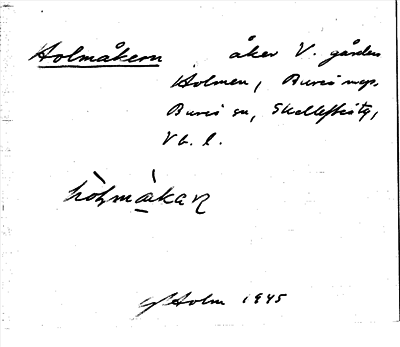 Holmåkern åker V. gården
Holmen, Bureå msp.
Bureå sn, Skellefteå tg,
Vb. l.
hòḷmàkaɲ
G Holm 1945